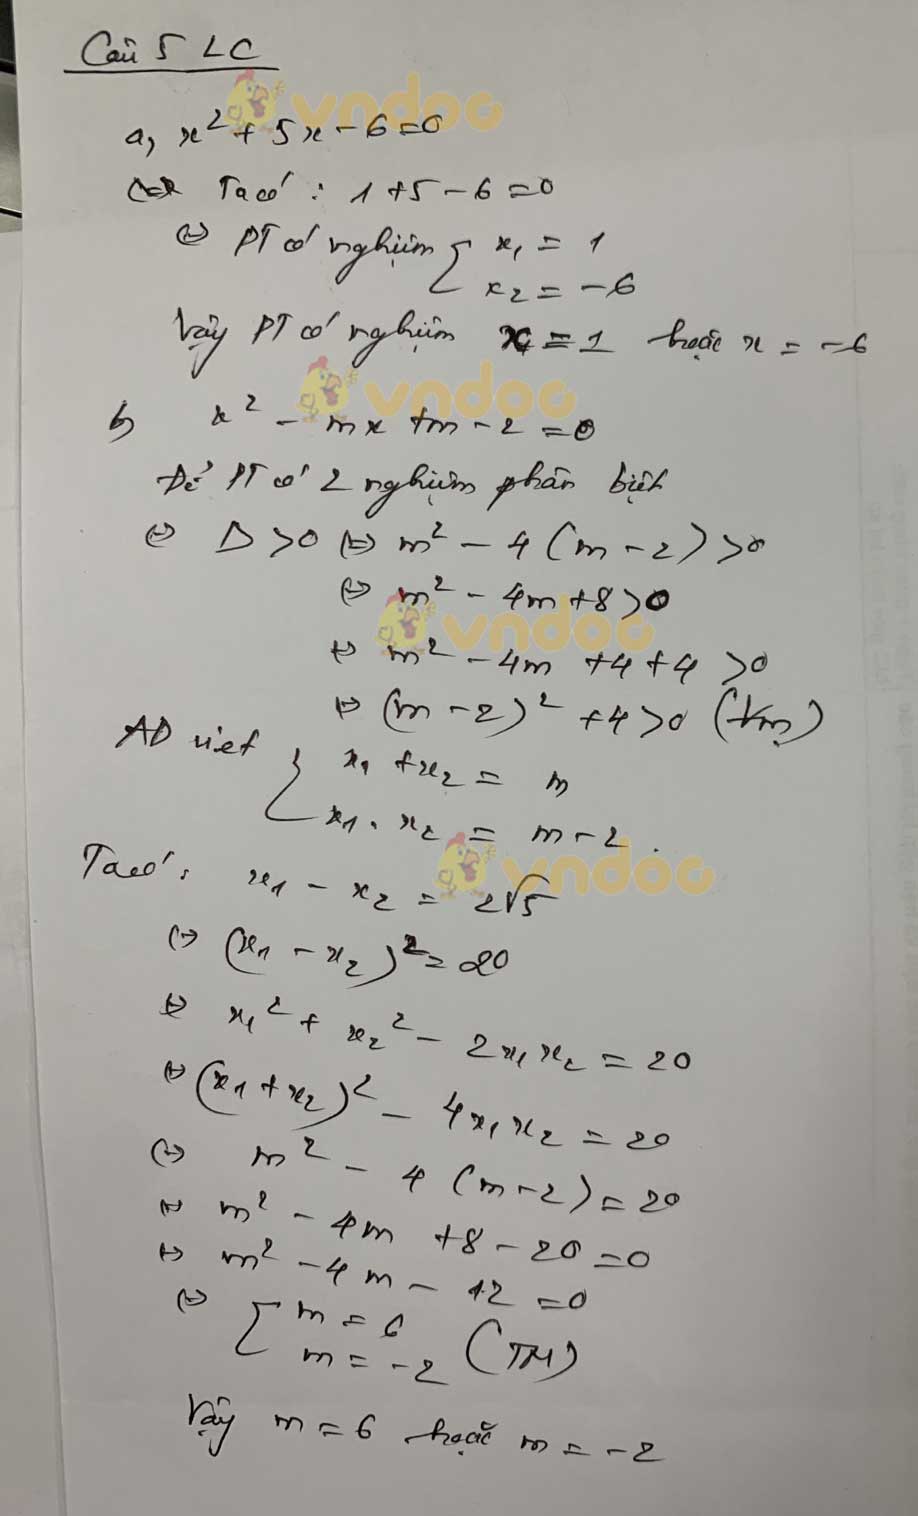 Câu 5 LC
a, x² + 5x - 6 = 0
Ta có: 1 + 5 - 6 = 0
⇔ PT có nghiệm { x₁ = 1
x₂ = -6
Vậy PT có nghiệm x = 1 hoặc x = -6
b, x² - mx + m - 2 = 0
Để PT có 2 nghiệm phân biệt
⇔ Δ > 0 ⇔ m² - 4(m - 2) > 0
⇔ m² - 4m + 8 > 0
⇔ m² - 4m + 4 + 4 > 0
⇔ (m - 2)² + 4 > 0 (∀m)
AD viet { x₁ + x₂ = m
x₁ . x₂ = m - 2.
Ta có: x₁ - x₂ = 2√5
⇔ (x₁ - x₂)² = 20
⇔ x₁² + x₂² - 2x₁x₂ = 20
⇔ (x₁ + x₂)² - 4x₁x₂ = 20
⇔ m² - 4(m - 2) = 20
⇔ m² - 4m + 8 - 20 = 0
⇔ m² - 4m - 12 = 0
⇔ [ m = 6
m = -2 (TM)
Vậy m = 6 hoặc m = -2
vndoc
vndoc
vndoc
vndoc